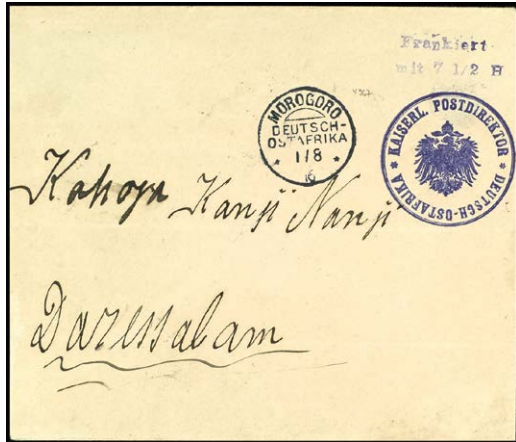 Frankiert
mit 7 1/2 H
MOROGORO
DEUTSCH-
OSTAFRIKA
* 1/8 *
16
* KAISERL. POSTDIREKTOR * DEUTSCH-OSTAFRIKA
Kanji Nanji
Daressalam